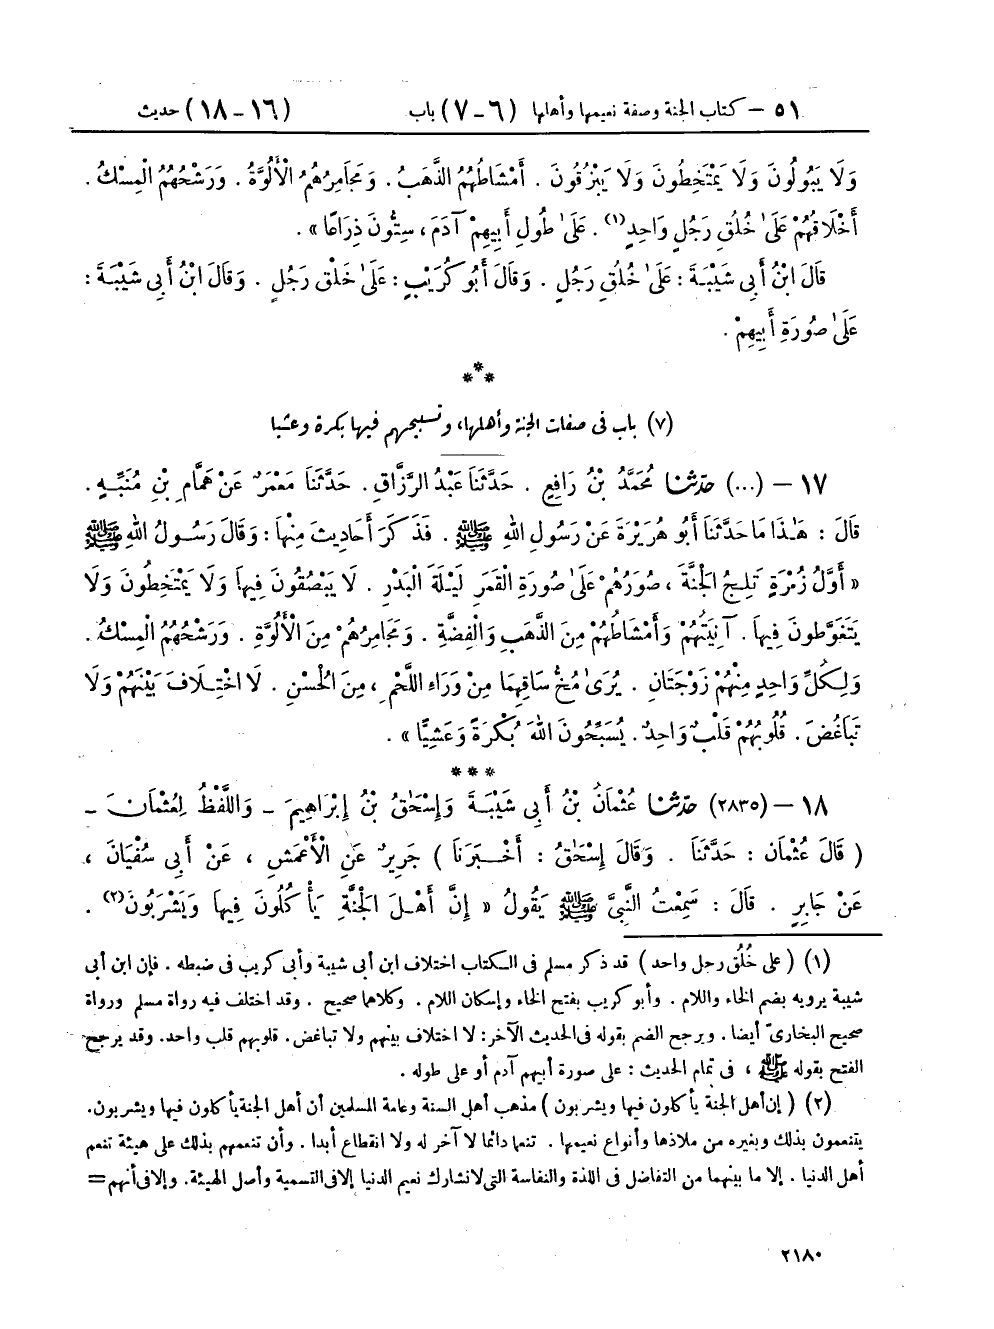 ٥١ – كتاب الجنة وصفة نعيمها وأهلها (٦-٧) باب (١٦-١٨) حديث
وَلَا يَبُولُونَ وَلَا يَمْتَخِطُونَ وَلَا يَبْزُقُونَ . أَمْشَاطُهُمُ الذَّهَبُ . وَمَجَامِرُهُمُ الْأَلُوَّةُ . وَرَشْحُهُمُ الْمِسْكُ .
أَخْلَاقُهُمْ عَلَىٰ خُلُقِ رَجُلٍ وَاحِدٍ(١) . عَلَىٰ طُولِ أَبِيهِمْ آدَمَ ، سِتُّونَ ذِرَاعًا » .
قَالَ ابْنُ أَبِي شَيْبَةَ : عَلَىٰ خُلُقِ رَجُلٍ . وَقَالَ أَبُو كُرَيْبٍ : عَلَىٰ خَلْقِ رَجُلٍ . وَقَالَ ابْنُ أَبِي شَيْبَةَ :
عَلَىٰ صُورَةِ أَبِيهِمْ .
***
(٧) باب فى صفات الجنة وأهلها، وتسبيحهم فيها بكرة وعشيا
١٧ – (...) حَدَّثَنَا مُحَمَّدُ بْنُ رَافِعٍ . حَدَّثَنَا عَبْدُ الرَّزَّاقِ . حَدَّثَنَا مَعْمَرٌ عَنْ هَمَّامِ بْنِ مُنَبِّهٍ .
قَالَ : هَٰذَا مَا حَدَّثَنَا أَبُو هُرَيْرَةَ عَنْ رَسُولِ اللهِ ﷺ . فَذَكَرَ أَحَادِيثَ مِنْهَا : وَقَالَ رَسُولُ اللهِ ﷺ
« أَوَّلُ زُمْرَةٍ تَلِجُ الْجَنَّةَ ، صُوَرُهُمْ عَلَىٰ صُورَةِ الْقَمَرِ لَيْلَةَ الْبَدْرِ . لَا يَبْصُقُونَ فِيهَا وَلَا يَمْتَخِطُونَ وَلَا
يَتَغَوَّطُونَ فِيهَا . آنِيَتُهُمْ وَأَمْشَاطُهُمْ مِنَ الذَّهَبِ وَالْفِضَّةِ . وَمَجَامِرُهُمْ مِنَ الْأَلُوَّةِ . وَرَشْحُهُمُ الْمِسْكُ .
وَلِكُلِّ وَاحِدٍ مِنْهُمْ زَوْجَتَانِ . يُرَىٰ مُخُّ سَاقِهِمَا مِنْ وَرَاءِ اللَّحْمِ ، مِنَ الْحُسْنِ . لَا اخْتِلَافَ بَيْنَهُمْ وَلَا
تَبَاغُضَ . قُلُوبُهُمْ قَلْبٌ وَاحِدٌ . يُسَبِّحُونَ اللهَ بُكْرَةً وَعَشِيًّا » .
***
١٨ – (٢٨٣٥) حَدَّثَنَا عُثْمَانُ بْنُ أَبِي شَيْبَةَ وَإِسْحَٰقُ بْنُ إِبْرَاهِيمَ – وَاللَّفْظُ لِعُثْمَانَ –
( قَالَ عُثْمَانُ : حَدَّثَنَا . وَقَالَ إِسْحَٰقُ : أَخْبَرَنَا ) جَرِيرٌ عَنِ الْأَعْمَشِ ، عَنْ أَبِي سُفْيَانَ ،
عَنْ جَابِرٍ . قَالَ : سَمِعْتُ النَّبِيَّ ﷺ يَقُولُ « إِنَّ أَهْلَ الْجَنَّةِ يَأْكُلُونَ فِيهَا وَيَشْرَبُونَ(٢) .
(١) ( على خُلُق رجل واحد ) قد ذكر مسلم فى الكتاب اختلاف ابن أبى شيبة وأبى كريب فى ضبطه . فإن ابن أبى
شيبة يرويه بضم الخاء واللام . وأبو كريب بفتح الخاء وإسكان اللام . وكلاهما صحيح . وقد اختلف فيه رواة مسلم ورواة
صحيح البخارىّ أيضا . ويرجح الضم بقوله فى الحديث الآخر: لا اختلاف بينهم ولا تباغض. قلوبهم قلب واحد. وقد يرجح
الفتح بقوله ﷺ ، فى تمام الحديث : على صورة أبيهم آدم أو على طوله .
(٢) ( إن أهل الجنة يأكلون فيها ويشربون ) مذهب أهل السنة وعامة المسلمين أن أهل الجنة يأكلون فيها ويشربون.
يتنعمون بذلك وبغيره من ملاذها وأنواع نعيمها . تنعما دائما لا آخر له ولا انقطاع أبدا . وأن تنعمهم بذلك على هيئة تنعم
أهل الدنيا . إلا ما بينهما من التفاضل فى اللذة والنفاسة التى لا تشارك نعيم الدنيا إلا فى التسمية وأصل الهيئة. وإلا فى أنهم =
٢١٨٠